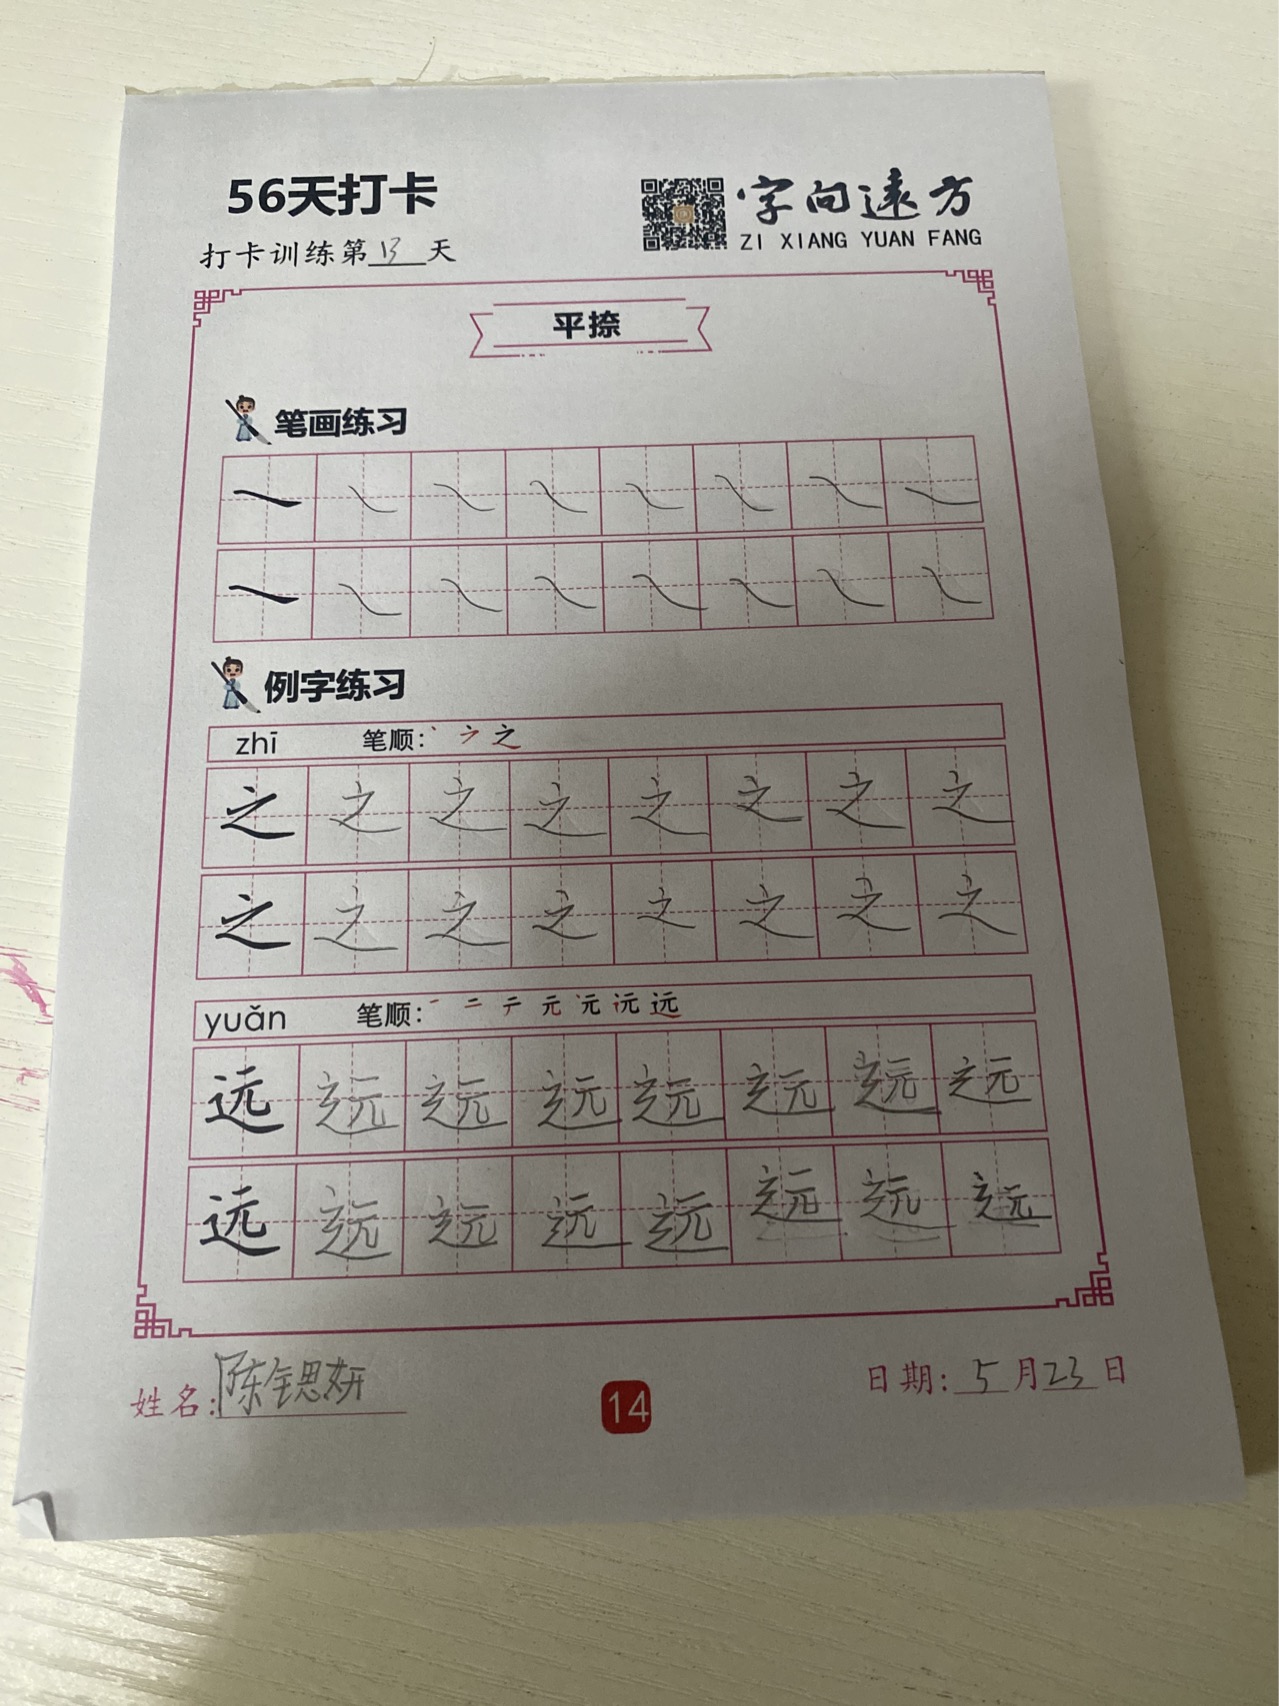 56天打卡
字向遠方
ZI XIANG YUAN FANG
打卡训练第13天
平捺
笔画练习
例字练习
zhī 笔顺: 之
之 之 之 之 之 之 之 之
之 之 之 之 之 之 之 之
yuǎn 笔顺: 一 二 テ 元 元 远 远
远 远 远 远 远 远 远 远
远 远 远 远 远 远 远 远
姓名: 陈思妍
14
日期: 5月23日